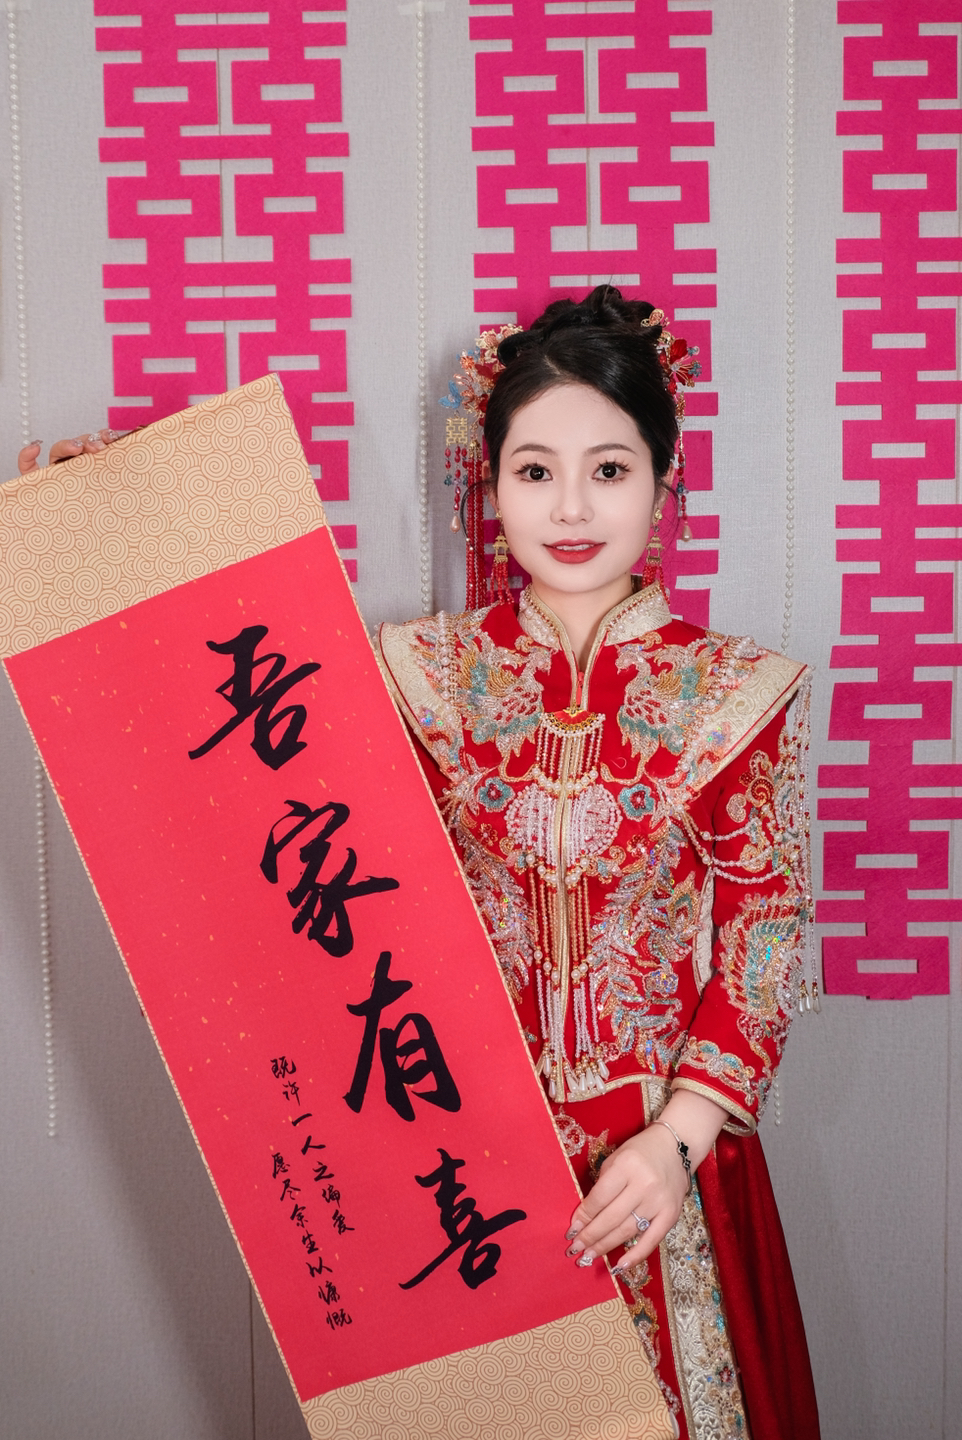 囍囍囍
囍囍囍
囍
吾家有喜
既许一人之偏爱
愿尽余生以慷慨